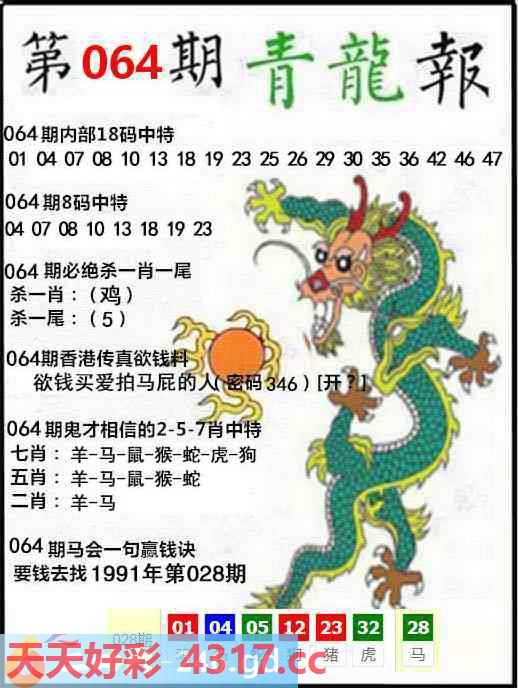 第064期 青龍報
064期内部18码中特
01 04 07 08 10 13 18 19 23 25 26 29 30 35 36 42 46 47
064期8码中特
04 07 08 10 13 18 19 23
064期必绝杀一肖一尾
杀一肖：(鸡)
杀一尾：(5)
064期香港传真欲钱料
欲钱买爱拍马屁的人(密码346)[开?]
064期鬼才相信的2-5-7肖中特
七肖：羊-马-鼠-猴-蛇-虎-狗
五肖：羊-马-鼠-猴-蛇
二肖：羊-马
064期马会一句赢钱诀
要钱去找1991年第028期
028期 01 04 05 12 23 32 28
狗 猪 虎 马
天天好彩 4317.cc